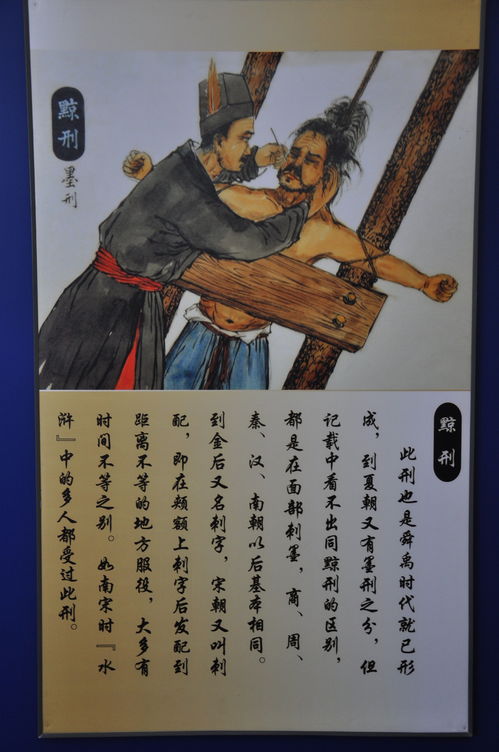 黥刑
墨刑
黥刑
此刑也是舜禹时代就已形
成，到夏朝又有墨刑之分，但
记载中看不出同黥刑的区别，
都是在面部刺墨，商、周、
秦、汉、南朝以后基本相同。
到金后又名刺字，宋朝又叫刺
配，即在颊额上刺字后发配到
距离不等的地方服役，大多有
时间不等之别。如南宋时『水
浒』中的多人都受过此刑。